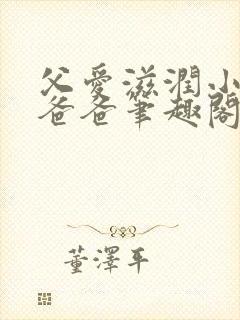 父愛滋潤小
爸爸筆趣閣
董澤平